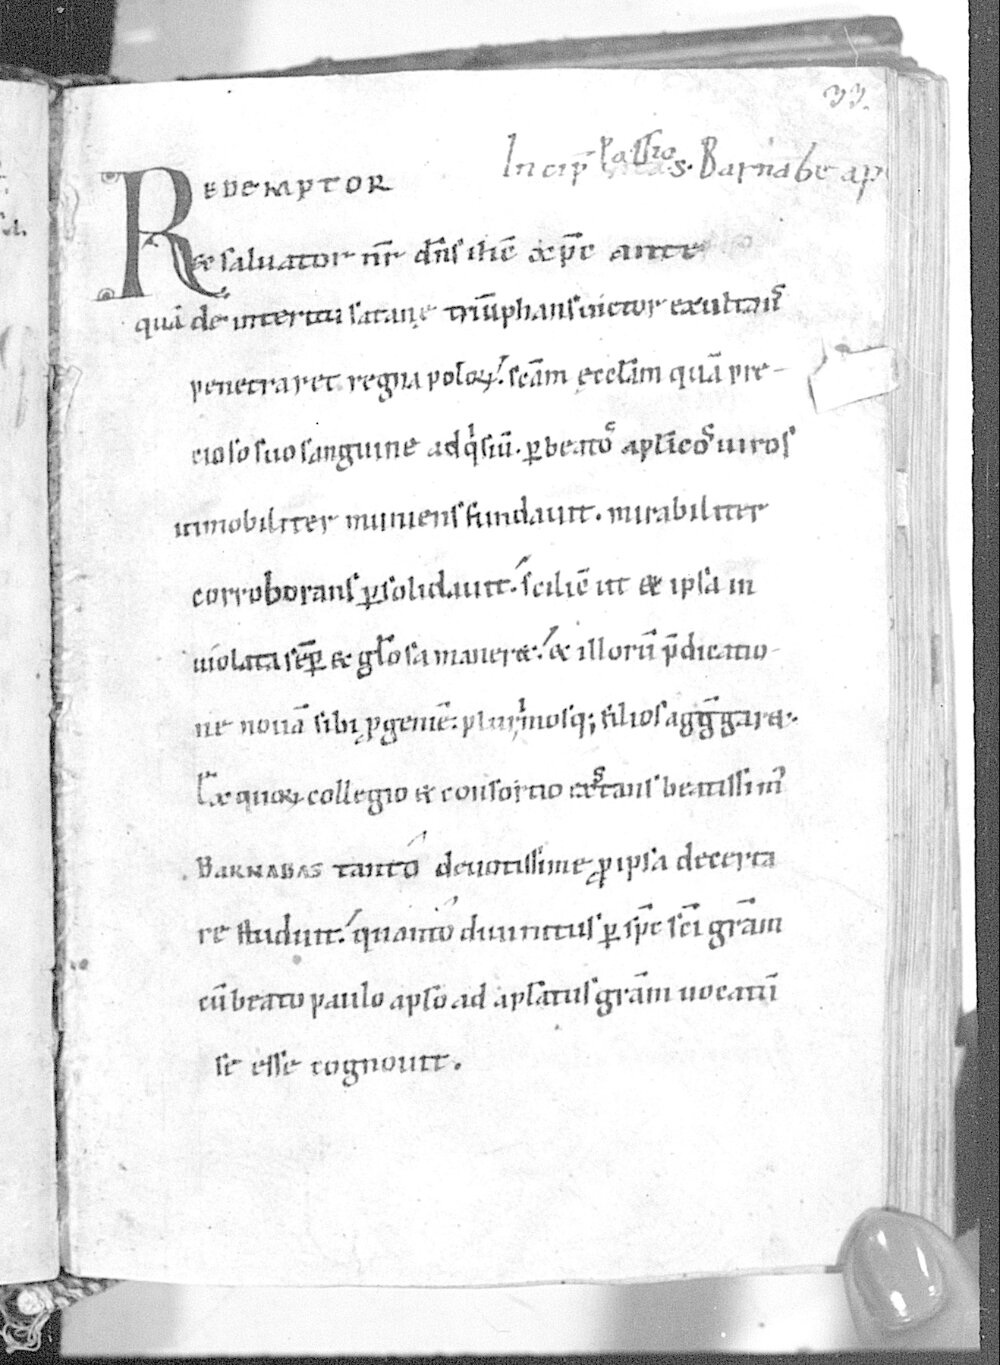 33.
Incip̄ Passio s. Barnabe ap
REDEMPTOR
& saluator nr̄ dn̄s ih̄c xp̄c ante
quā de interitu satanę triūphans uictor exultans
penetraret regna poloꝝ. sc̄am ęccl̄am quā pre-
cioso suo sanguine adq̇siū. ꝑ beatos apl̄icos uiros
inmobiliter muniens fundauit. mirabiliter
corroborans ꝑsolidauit. scilic̄ ut & ipsa in
uiolata sēꝑ & gl̄osa maner&. & illorū p̄dicatio-
ne nouā sibi ꝓgeniē. plurimosq; filios aggregar&.
Ex quoꝝ collegio & consortio extans beatissim᾽
BARNABAS tanto deuotissime ꝓ ipsa decerta
re studuit. quanto diuinitus ꝑ sp̄c sc̄i gr̄am
cū beato paulo apso ad apsatus gr̄am uocatū
se esse cognouit.